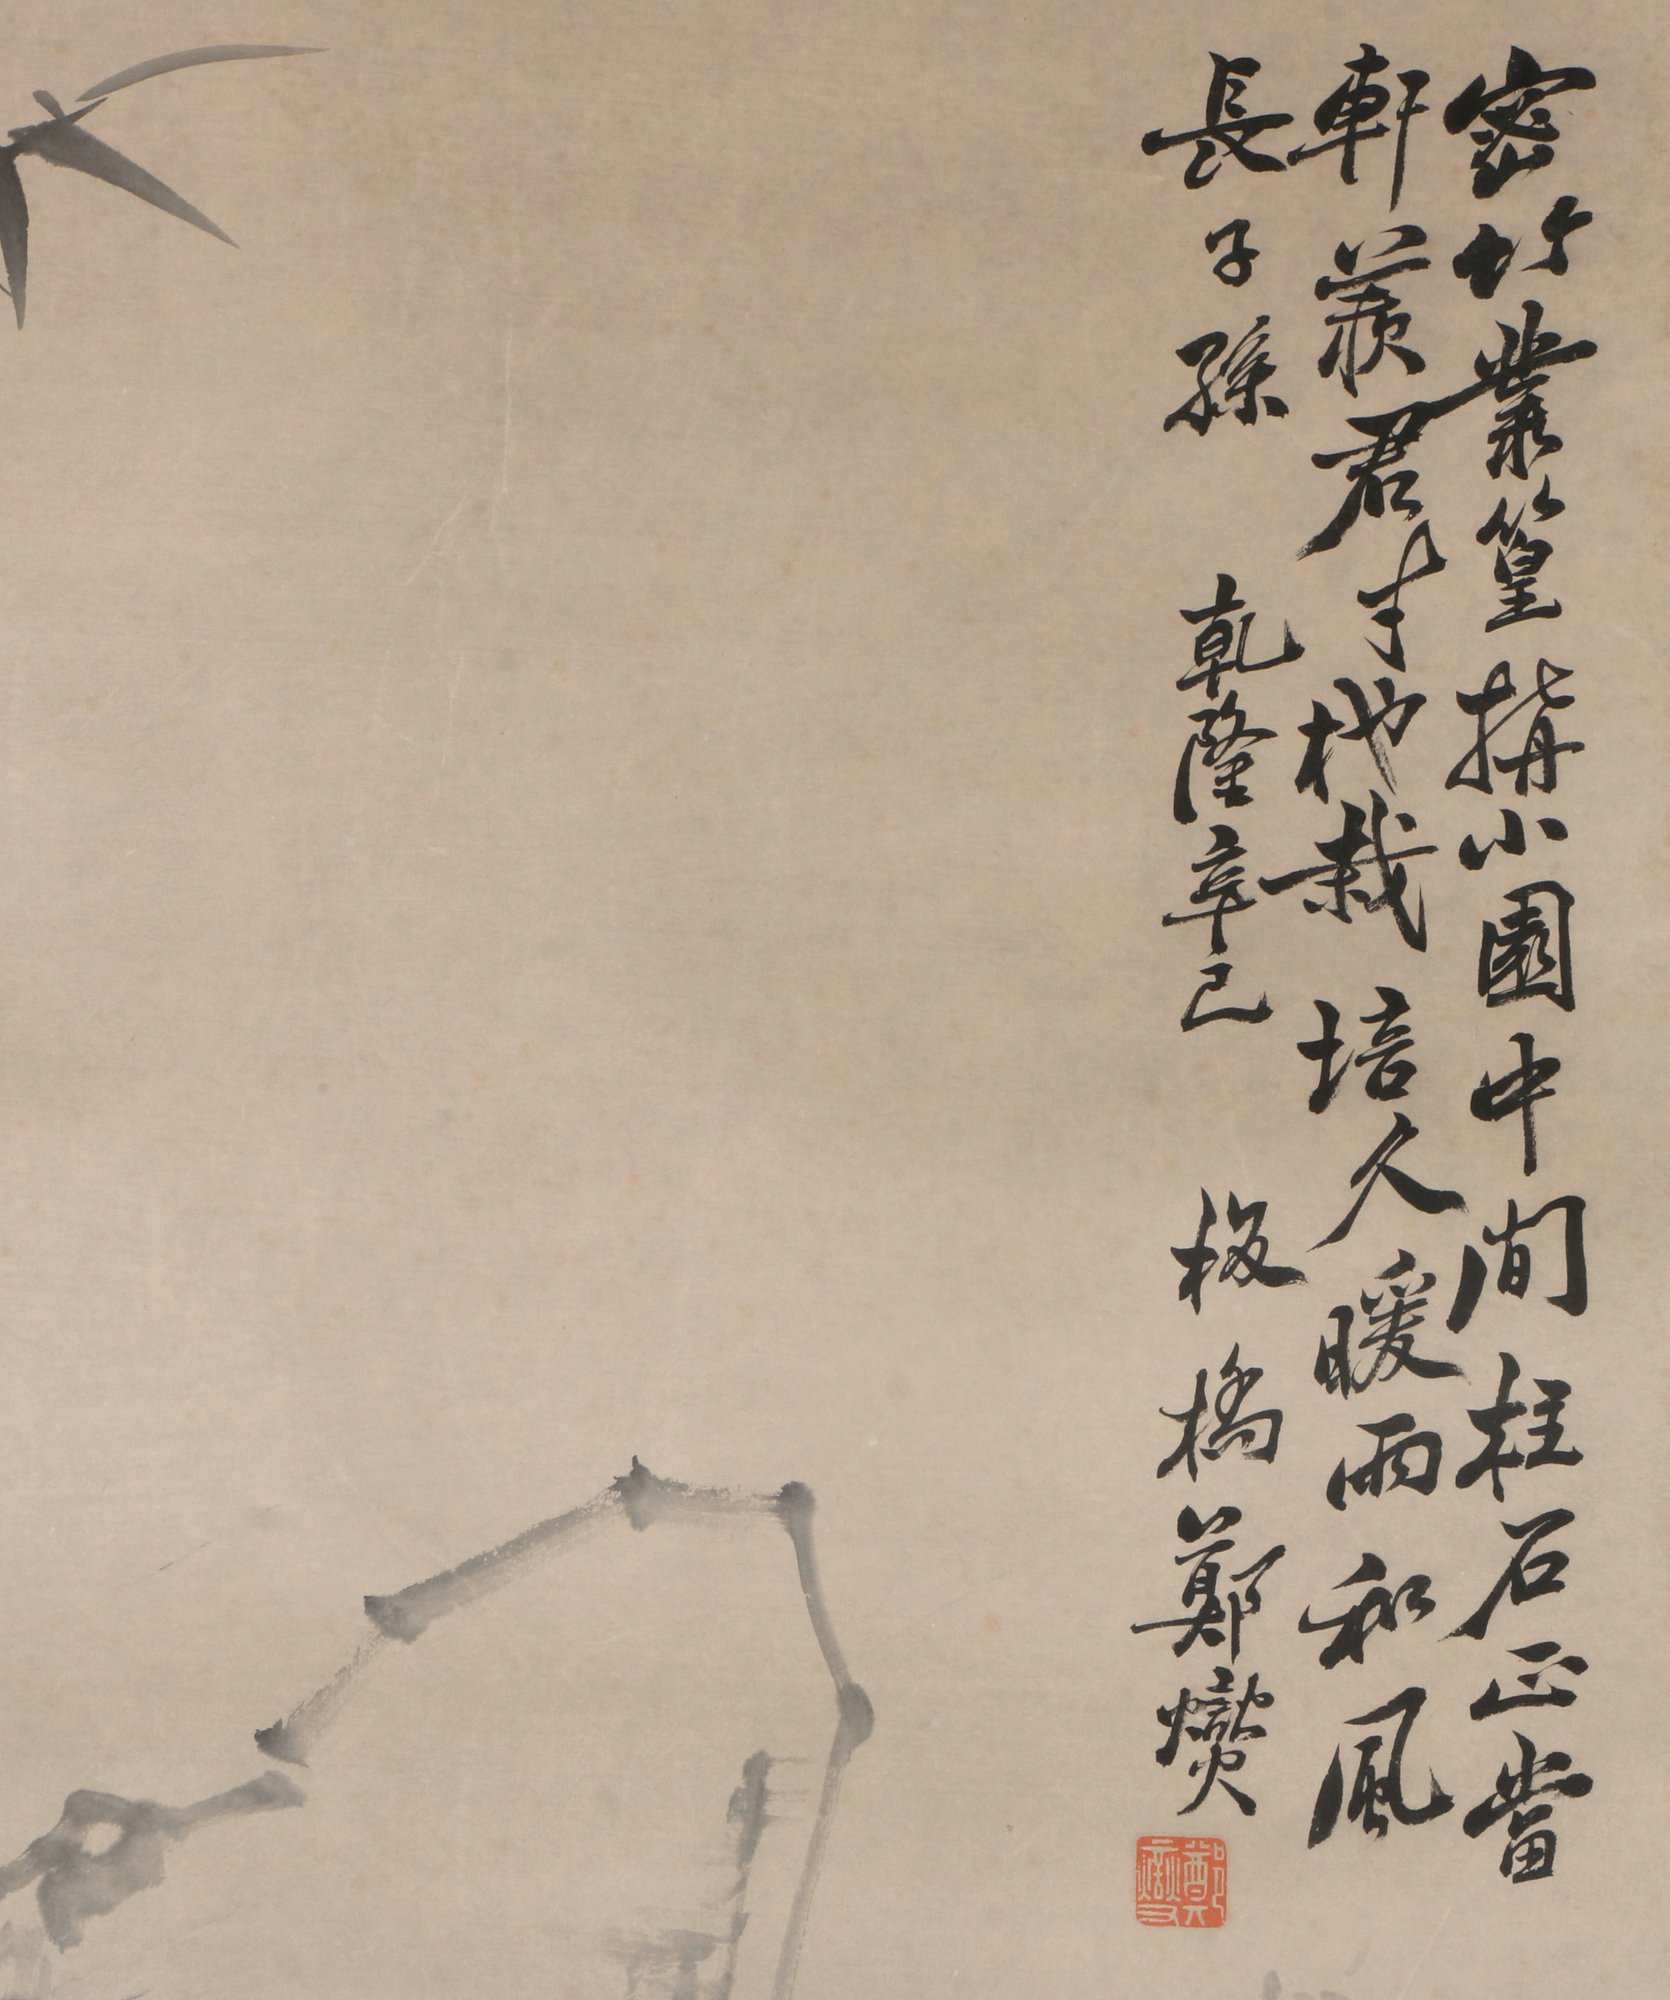 密竹叢篁構小園中間柱石正當
軒羨君手地栽培久暖雨和風
長子孫 乾隆辛巳 板橋鄭燮
鄭燮